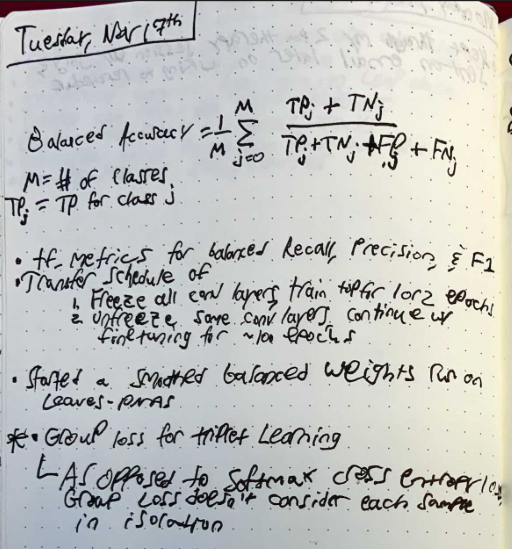 Tuesday, Nov 17th
Balanced Accuracy = 1/M Σ_{j=0}^{M} (TP_j + TN_j) / (TP_j + TN_j + FP_j + FN_j)
M = # of classes,
TP_j = TP for class j
• tf.metrics for balanced Recall, Precision, & F1
• Transfer Schedule of
1. Freeze all conv layers, train top for 1 or 2 epochs
2. Unfreeze some conv layers, continue w/
finetuning for ~100 epochs
• Started a smoothed balanced weights run on
Leaves-PNAS
* • Group loss for triplet Learning
└ As opposed to softmax cross entropy
Group Loss doesn't consider each sample
in isolation